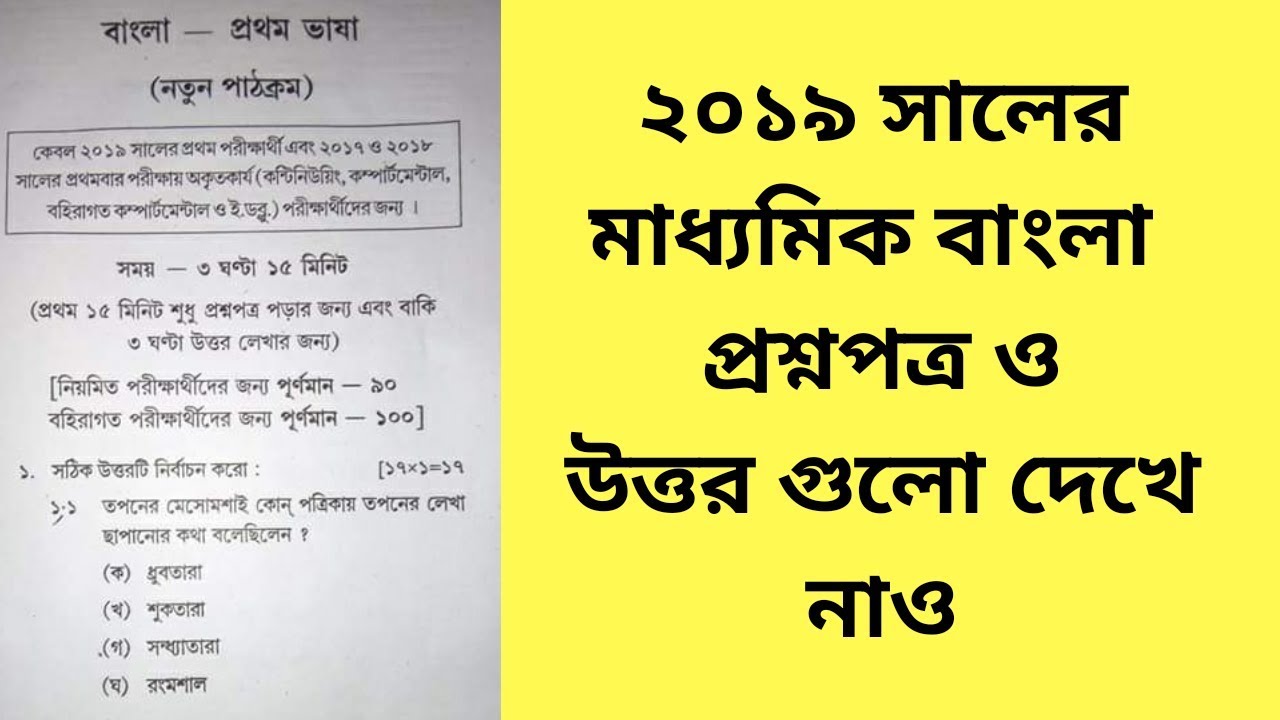 বাংলা — প্রথম ভাষা
(নতুন পাঠক্রম)
কেবল ২০১৯ সালের প্রথম পরীক্ষার্থী এবং ২০১৭ ও ২০১৮
সালের প্রথমবার পরীক্ষায় অকৃতকার্য (কন্টিনিউয়িং, কম্পার্টমেন্টাল,
বহিরাগত কম্পার্টমেন্টাল ও ই.ডব্লু.) পরীক্ষার্থীদের জন্য ।
সময় — ৩ ঘণ্টা ১৫ মিনিট
(প্রথম ১৫ মিনিট শুধু প্রশ্নপত্র পড়ার জন্য এবং বাকি
৩ ঘণ্টা উত্তর লেখার জন্য)
[নিয়মিত পরীক্ষার্থীদের জন্য পূর্ণমান — ৯০
বহিরাগত পরীক্ষার্থীদের জন্য পূর্ণমান — ১০০]
১. সঠিক উত্তরটি নির্বাচন করো : [১৭×১=১৭
১.১ তপনের মেসোমশাই কোন্ পত্রিকায় তপনের লেখা
ছাপানোর কথা বলেছিলেন ?
(ক) ধ্রুবতারা
(খ) শুকতারা
(গ) সন্ধ্যাতারা
(ঘ) রংমশাল
২০১৯ সালের
মাধ্যমিক বাংলা
প্রশ্নপত্র ও
উত্তর গুলো দেখে
নাও